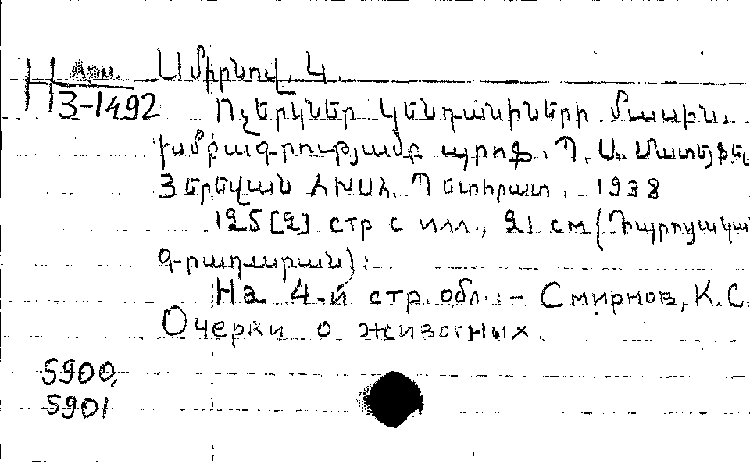 Арм. Սմիրնով, Կ.
Н 3-1492 Ոչերկներ կենդանիների մասին.
խմբագրությամբ պրոֆ. Պ. Ս. Մատեֆեև
Յերեվան ՀԽՍՀ Պետհրատ. 1938
125 [2] стр с илл., 21 см (Դպրոցական
գրադարան):
На 4-й стр. обл.: – Смирнов, К.С.
Очерки о животных.
5900,
5901